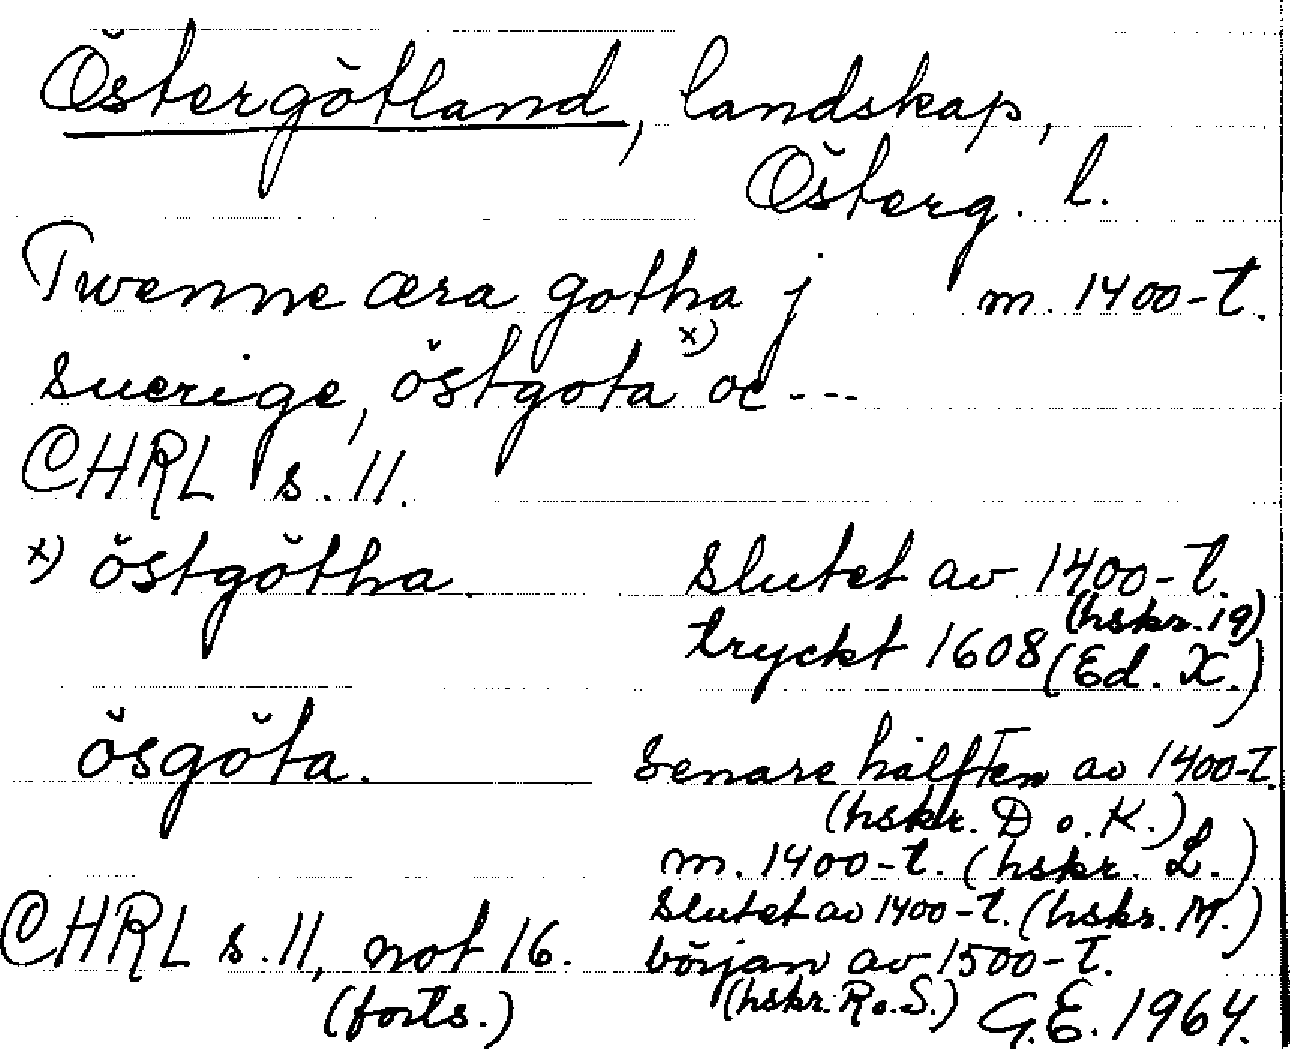 Östergötland, landskap,
Österg. l.
Twenne æra gotha j m. 1400-t.
suerige, östgota x) oc ---
CHRL s. 11.
x) östgötha. slutet av 1400-t.
(hskr. 19)
tryckt 1608 (Ed. X.)
ösgöta. senare hälften av 1400-t.
(hskr. D o. K.)
m. 1400-t. (hskr. L.)
slutet av 1400-t. (hskr. M.)
CHRL s. 11, not 16. början av 1500-t.
(forts.) (hskr. R o. S.) G.E. 1964.